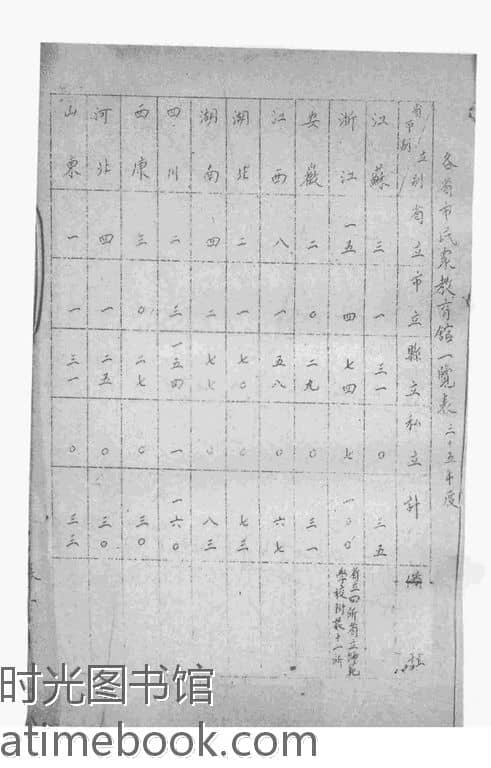 各省市民衆教育館一覽表 三十五年度
省市别 立别 省立 市立 縣立 私立 計 備註
江蘇 三 一 三一 〇 三五
浙江 一五 四 七四 七 一〇〇 省立四所省立師範學校附設十一所
安徽 二 〇 二九 〇 三一
江西 八 一 五八 〇 六七
湖北 二 一 七〇 〇 七三
湖南 四 二 七七 〇 八三
四川 二 三 一五四 一 一六〇
西康 三 〇 二七 〇 三〇
河北 四 一 二五 〇 三〇
山東 一 一 三一 〇 三三
时光图书馆
atimebook.com